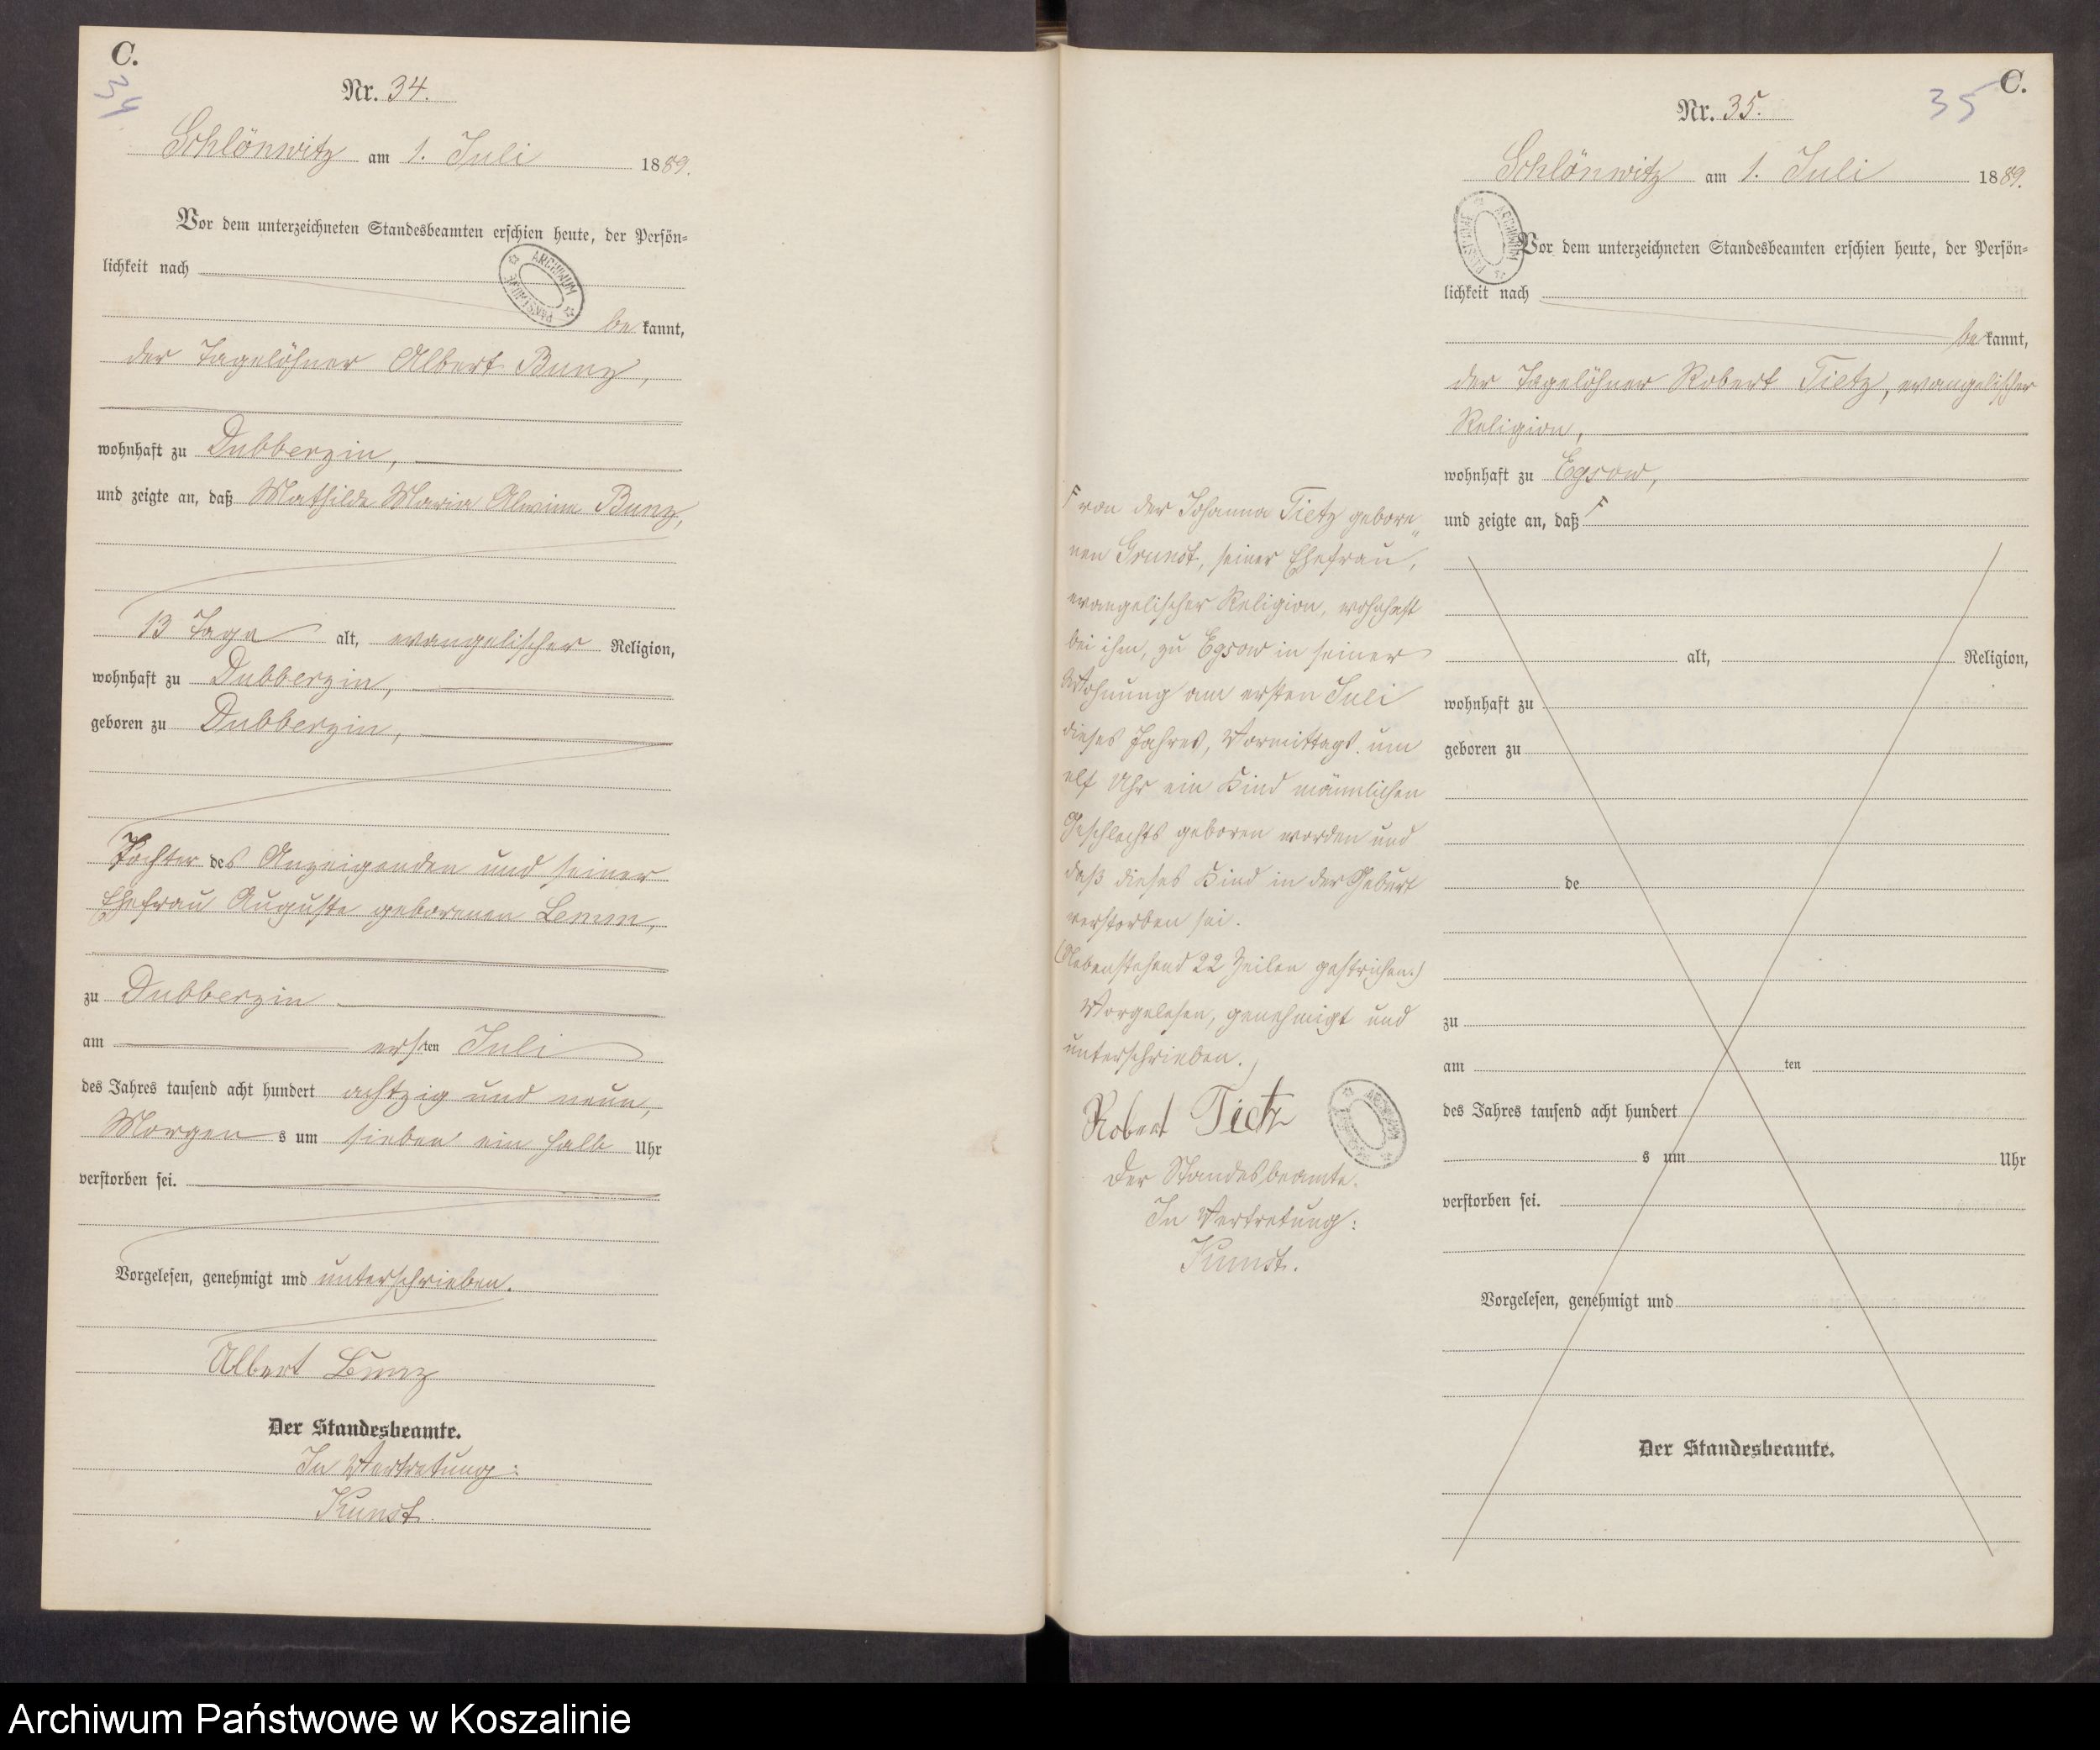 C.
34
Nr. 34.
Schlönwitz am 1. Juli 1889.
Vor dem unterzeichneten Standesbeamten erschien heute, der Persön-
lichkeit nach
ARCHIWUM PAŃSTWOWE
bekannt,
der Tagelöhner Albert Bunz,
wohnhaft zu Dubberzin,
und zeigte an, daß Mathilde Maria Alwine Bunz,
13 Tage alt, evangelischer Religion,
wohnhaft zu Dubberzin,
geboren zu Dubberzin,
Tochter des Anzeigenden und seiner
Ehefrau Auguste geborenen Lemm,
zu Dubberzin
am ersten Juli
des Jahres tausend acht hundert achtzig und neun,
Morgens um sieben ein halb Uhr
verstorben sei.
Vorgelesen, genehmigt und unterschrieben.
Albert Bunz
Der Standesbeamte.
In Vertretung:
Kunst.
C.
35
Nr. 35.
Schlönwitz am 1. Juli 1889.
ARCHIWUM PAŃSTWOWE
Vor dem unterzeichneten Standesbeamten erschien heute, der Persön-
lichkeit nach
bekannt,
der Tagelöhner Robert Tietz, evangelischer
Religion,
wohnhaft zu Egsow,
und zeigte an, daß F
F von der Johanna Tietz gebore"
nen Grunst, seiner Ehefrau,
evangelischer Religion, wohnhaft
bei ihm, zu Egsow in seiner
Wohnung am ersten Juli
dieses Jahres, Vormittags um
elf Uhr ein Kind männlichen
Geschlechts geboren worden und
daß dieses Kind in der Geburt
verstorben sei.
(Nebenstehend 22 Zeilen gestrichen.)
Vorgelesen, genehmigt und
unterschrieben.
Robert Tietz
ARCHIWUM PAŃSTWOWE
Der Standesbeamte.
In Vertretung:
Kunst.
alt, Religion,
wohnhaft zu
geboren zu
de
zu
am ten
des Jahres tausend acht hundert
s um Uhr
verstorben sei.
Vorgelesen, genehmigt und
Der Standesbeamte.
Archiwum Państwowe w Koszalinie